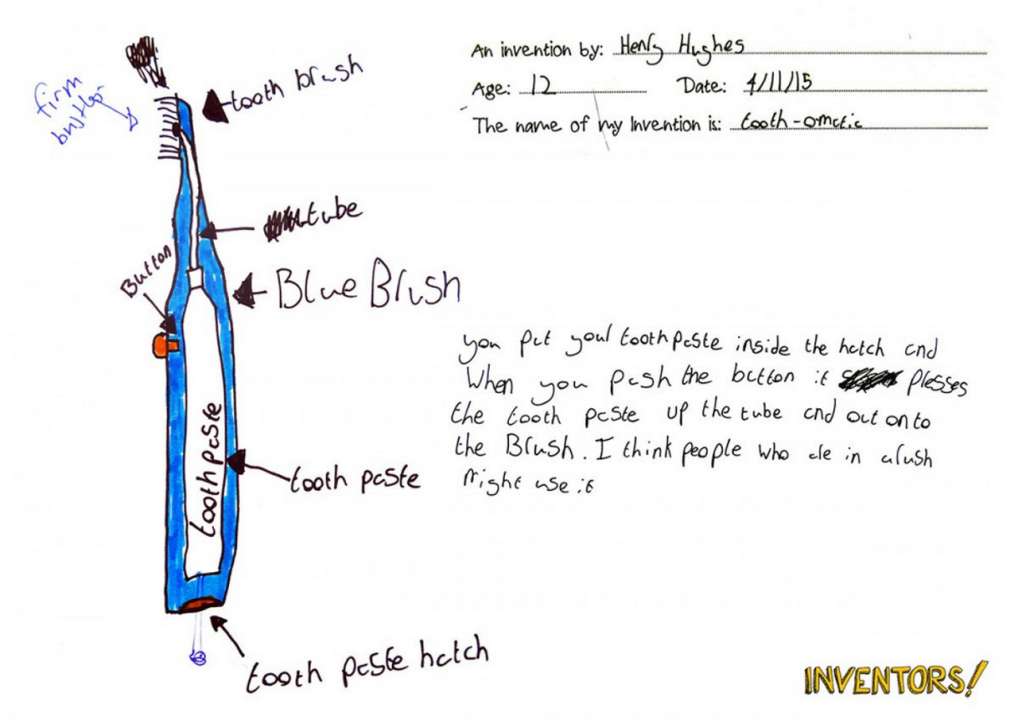 An invention by: Henry Hughes
Age: 12 Date: 4/11/15
The name of my Invention is: tooth-omatic
tooth brush
firm
tube
Button
Blue Brush
you put your toothpaste inside the hatch and
When you push the button it presses
the tooth paste up the tube and out onto
the Brush. I think people who are in a rush
Might use it
toothpaste
tooth paste
tooth paste hatch
INVENTORS!